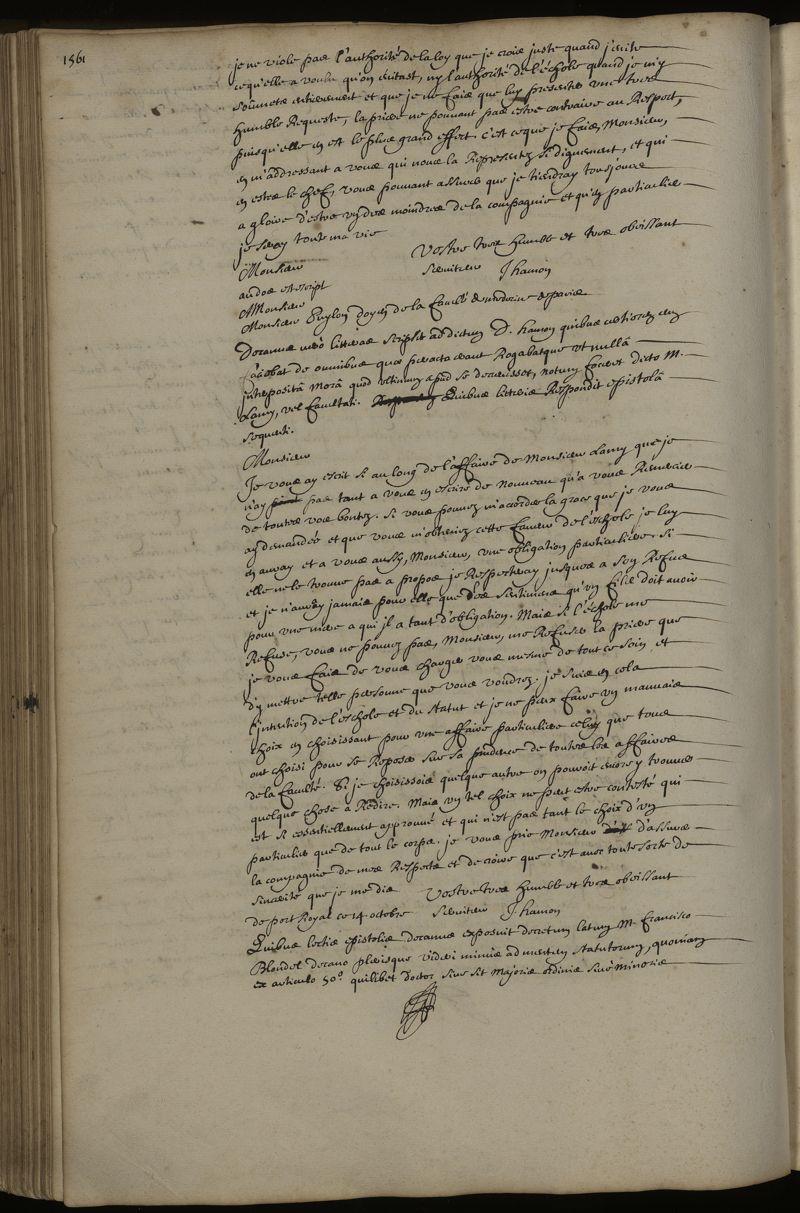 1561
je ne viole pas l'authorité de la loy que je croie juste quand j'evite
ce qu'elle a voulu qu'on evitast, ny l'authorité de l'échole quand je m'y
soumets entierement et que je ne faie que luy presenter une tres
humble Requeste, la priere ne pouuant pas estre contraire au Respect,
puisqu'elle en est le plus grand effect. C'est ceque je faie, Monsieur,
en m'addressant a vous qui nous la Representez si dignement, et qui
en estes le chef, vous pouuant asseurer que je tiendray tousjours
a gloire d'estre un des moindres de la compagnie et qu'en particulier
je seray toute ma vie
Monsieur Vostre tres humble et tres obeissant
au dos est escript seruiteur J hamon
A Monsieur
Monsieur Puylon doyen de la faculté de medecine de paris
Decanus meo litteras scripsit ad dictum D. hamon quibus certiorem eum
faciebat de omnibus quae peracta erant Rogabatque ut nullâ
interpositâ morâ quid ultimum apud se decreuisset, notum faceret dicto M.
Lamy, vel facultati. Quibus litteris Respondit epistolâ
sequenti.
Monsieur
Je vous ay escrit si au long de l'affaire de Monsieur Lamy que je
n'ay pas tant a vous en escrire de nouueau qu'a vous Remercier
de toutes vos bontez. Si vous pouuez m'accorder la grace que je vous
ay demandée et que vous m'obteniez cette faueur de l'eschole je luy
en auray et a vous aussy, Monsieur, une obligation particuliere. Si
elle ne le trouue pas a propos je Respecteray jusques a son Refus
et je n'auray jamais pour elle que des sentimens qu'un filz doit auoir
pour une mere a qui il a tant d'obligation. Mais si l'échole me
Refuse, vous ne pouuez pas, Monsieur, me Refuser la priere que
je vous faie de vous charger vous mesme de tout ce soin et
d'y mettre telle personne que vous voudrez. je suis en cela
l'intention de l'eschole et du statut et je ne peux faire un mauuais
choix en choisissant pour une affaire particuliere celuy que tous
ont choisi pour se Reposer sur sa prudence de toutes les affaires
de la faculté. Si je choisissois quelque autre on pouroit encore y trouuer
quelque chose a Redire. Mais un tel choix ne peut estre contesté qui
est si essentiellement approuué et qui n'est pas tant le choix d'un
particulier que de tout le corps. je vous prie Monsieur d'assurer
la compagnie de mes Respects et de croire que c'est auec toute sorte de
sincerité que je me dis Vostre tres humble et tres obeissant
de port Royal ce 14 octobre seruiteur J. hamon
Quibus lectis epistolis decanus exposuit decretum latum Mo Francisco
Blondel decano plerisque videri minus ad mentem statutorum, quoniam
ex articulo 50o. quilibet doctor siue sit majoris ordinis siue minoris